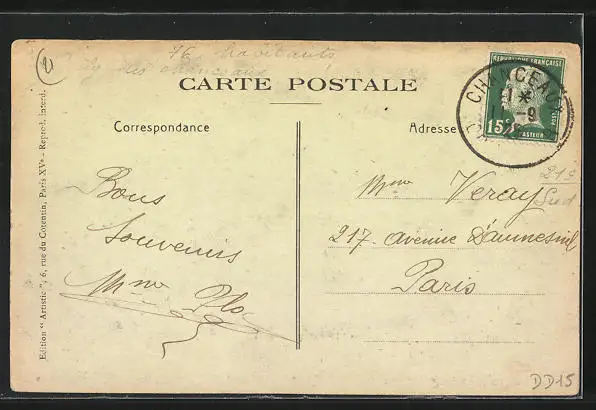 76 habitants
CARTE POSTALE
Correspondance
Adresse
RÉPUBLIQUE FRANÇAISE
POSTES
15c
PASTEUR
CHANCEAUX
Bons
Souvenirs
Mme Flo
Mme Veray
217 avenue Daumesnil
Paris
219
Sud
Edition "Artistic", 6, rue du Cotentin, Paris XVe - Reprod. interd.
DD15